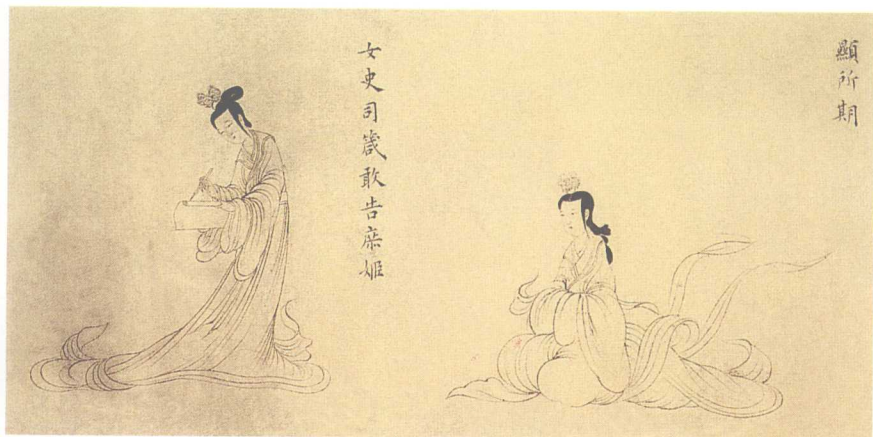 顯所期
女史司箴敢告庶姬